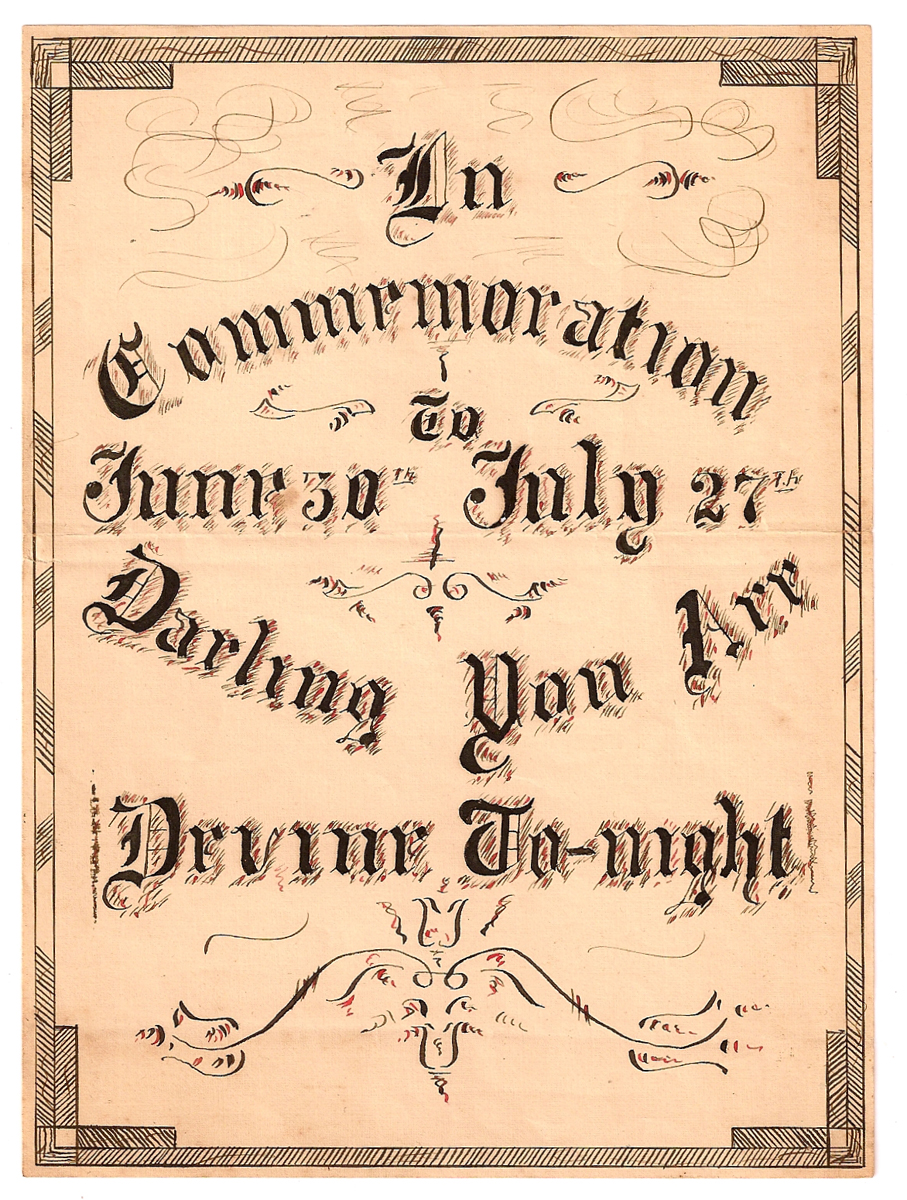 In
Commemoration
To
June 30th July 27th
Darling You Are
Devine To-night